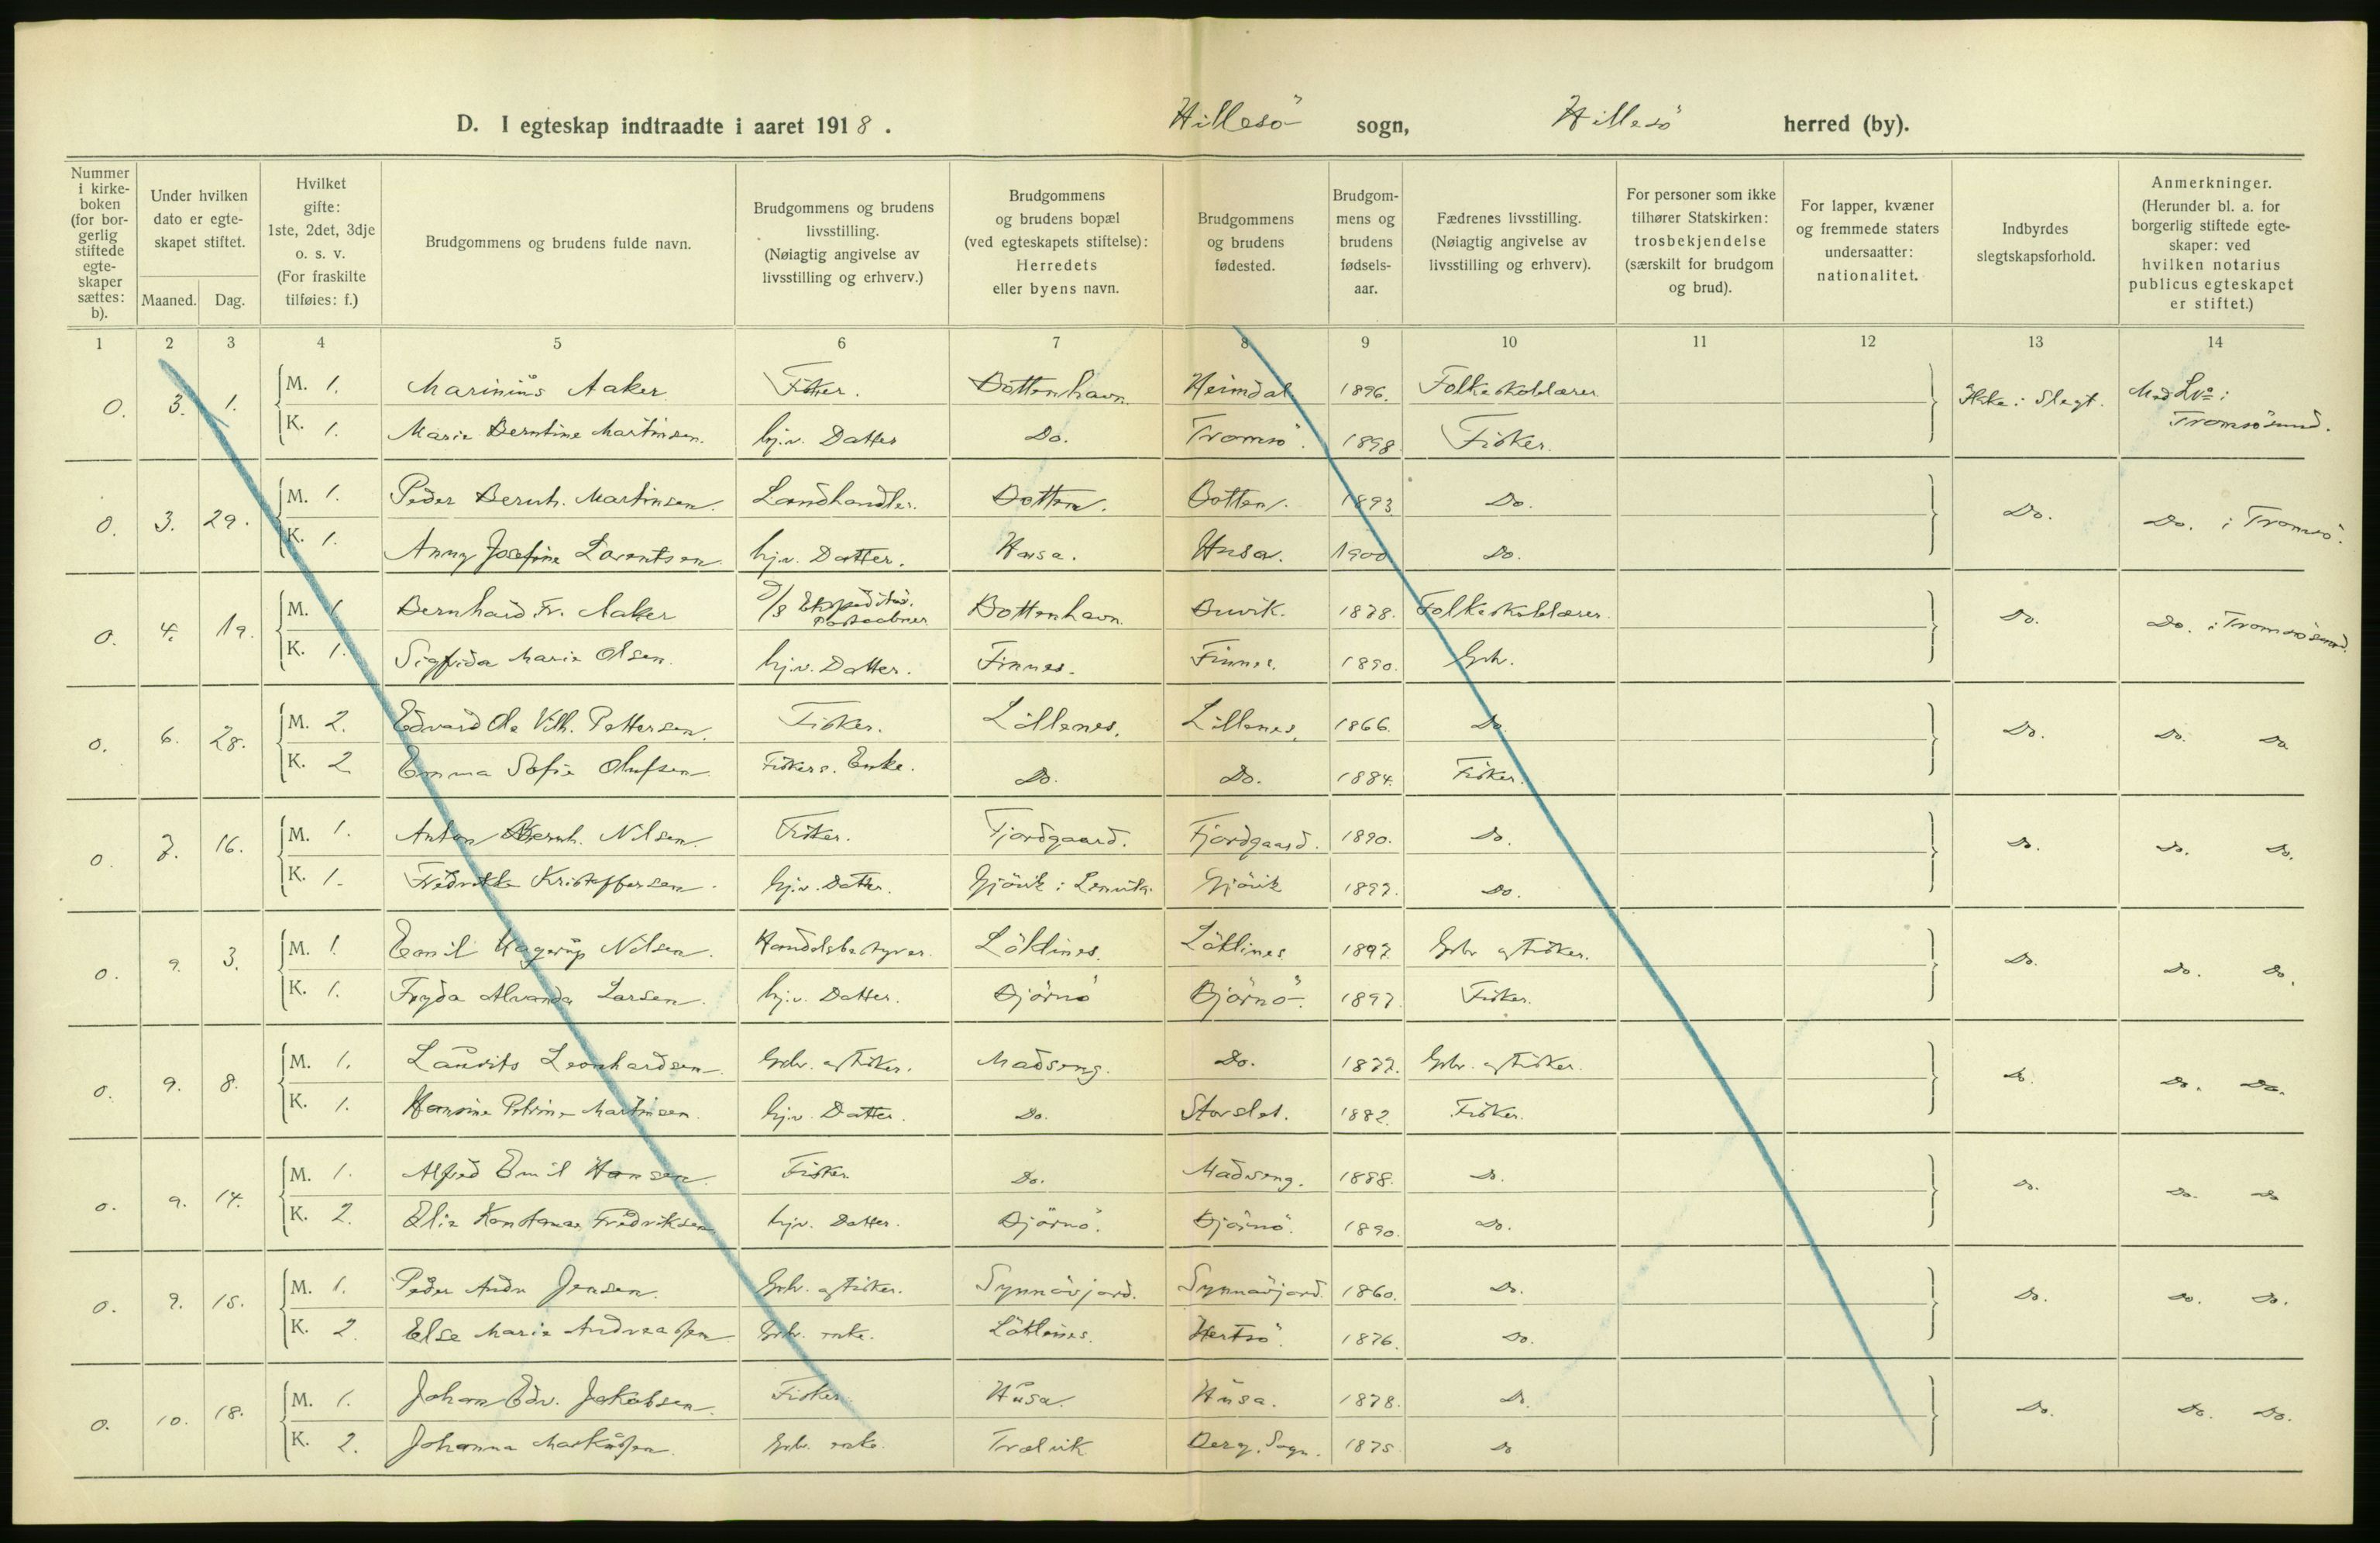 D. I egteskap indtraadte i aaret 1918. Hillesö sogn, Hillesö herred (by).
Nummer i kirkeboken (for borgerlig stiftede egteskaper sættes: b).
Under hvilken dato er egteskapet stiftet.
Maaned. Dag.
Hvilket gifte: 1ste, 2det, 3dje o. s. v. (For fraskilte tilføies: f.)
Brudgommens og brudens fulde navn.
Brudgommens og brudens livsstilling. (Nøiagtig angivelse av livsstilling og erhverv.)
Brudgommens og brudens bopæl (ved egteskapets stiftelse): Herredets eller byens navn.
Brudgommens og brudens fødested.
Brudgommens og brudens fødselsaar.
Fædrenes livsstilling. (Nøiagtig angivelse av livsstilling og erhverv).
For personer som ikke tilhører Statskirken: trosbekjendelse (særskilt for brudgom og brud).
For lapper, kvæner og fremmede staters undersaatter: nationalitet.
Indbyrdes slegtskapsforhold.
Anmerkninger. (Herunder bl. a. for borgerlig stiftede egteskaper: ved hvilken notarius publicus egteskapet er stiftet.)
1 2 3 4 5 6 7 8 9 10 11 12 13 14
0. 3. 1. M. 1. Marinius Aaker Fisker. Bottenhavn Heimdal 1896. Folkeskolelærer Ikke i Slegt. Med Lvs i Tromsösund.
K. 1. Marie Berntine Martinsen. hj.v. Datter Do. Tromsö. 1898 Fisker.
0. 3. 29. M. 1. Peder Bernh. Martinsen. Landhandler. Botten. Botten. 1893. Do. Do. Do. i Tromsö.
K. 1. Anny Josefine Lorentsen hj.v. Datter. Husa. Husa. 1900 Do.
0. 4. 19. M. 1. Bernhard Fr. Aaker D/S Ekspeditör. Postaabner Bottenhavn Buvik. 1878. Folkeskolelærer. Do. Do. i Tromsösund.
K. 1. Sigfrida Marie Olsen. hj.v. Datter. Finnes. Finnes. 1890. Gbr.
0. 6. 28. M. 2. Edvard Ole Vilh. Pettersen. Fisker. Lillenes. Lillenes. 1866. Do. Do. Do. Do
K. 2. Emma Sofie Olufsen Fiskers. Enke. Do. Do. 1884. Fisker.
0. 7. 16. M. 1. Anton Bernh. Nilsen. Fisker. Fjordgaard. Fjordgaard. 1890. Do. Do. Do. Do.
K. 1. Fredrikke Kristoffersen. hj.v. Datter. Gjövik i Lenvik. Gjövik 1897. Do.
0. 9. 3. M. 1. Emil Hagerup Nilsen. Handelsbestyrer. Löklines. Löklines 1897. Gbr og Fisker. Do. Do. Do.
K. 1. Fryda Alvanda Larsen. hj.v. Datter. Björnö Björnö. 1897. Fisker.
0. 9. 8. M. 1. Laurits Leonhardsen Gbr. og Fisker. Madseng. Do. 1877. Gbr. og Fisker. Do. Do. Do.
K. 1. Hansine Petrine Martinsen. hj.v. Datter. Do. Storslet. 1882. Fisker.
0. 9. 14. M. 1. Alfred Emil Hansen Fisker. Do. Madseng. 1888. Do. Do. Do. Do
K. 2. Elie Konstanse Fredriksen hjv. Datter. Björnö. Björnö. 1890. Do.
0. 9. 15. M. 1. Peder Andr Jensen. Gbr. og Fisker. Synnavjord. Synnavjord. 1860. Do. Do. Do. Do.
K. 2. Else Marie Andreassen Gbr. enke. Löklines. Hertsö. 1876. Do.
0. 10. 18. M. 1. Johan Edv. Jakobsen. Fisker. Husa. Husa. 1878. Do. Do. Do. Do.
K. 2. Johanna Markussen. Gbr. enke. Trælvik Berg. Sogn. 1875. Do